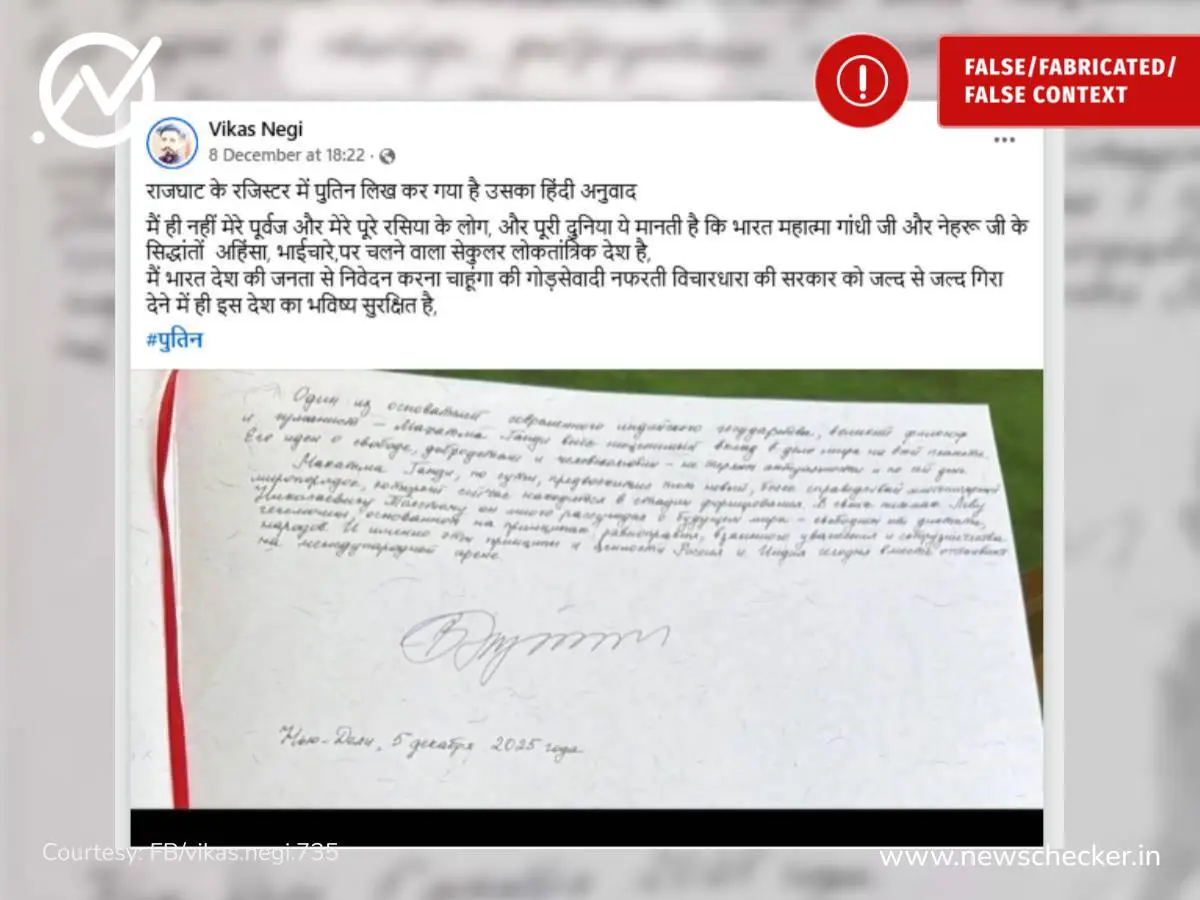 FALSE/FABRICATED/
FALSE CONTEXT
Vikas Negi
8 December at 18:22 ·
राजघाट के रजिस्टर में पुतिन लिख कर गया है उसका हिंदी अनुवाद
मैं ही नहीं मेरे पूर्वज और मेरे पूरे रसिया के लोग, और पूरी दुनिया ये मानती है कि भारत महात्मा गांधी जी और नेहरू जी के
सिद्धांतों अहिंसा, भाईचारे,पर चलने वाला सेकुलर लोकतांत्रिक देश है,
मैं भारत देश की जनता से निवेदन करना चाहूंगा की गोड़सेवादी नफरती विचारधारा की सरकार को जल्द से जल्द गिरा
देने में ही इस देश का भविष्य सुरक्षित है,
#पुतिन
Один из основателей современного индийского государства, великий философ
и гуманист – Махатма Ганди внёс неоценимый вклад в дело мира на всей планете.
Его идеи о свободе, добродетели и человеколюбии – не теряют актуальности и по сей день.
Махатма Ганди, по сути, предвосхитил тот новый, более справедливый
миропорядок, который сейчас находится в стадии формирования. В своих письмах Льву
Николаевичу Толстому он много рассуждал о будущем мира – свободном от диктата,
гегемонии, основанном на принципах равноправия, взаимного уважения и сотрудничества
народов. И именно эти принципы и ценности Россия и Индия сегодня вместе отстаивают
на международной арене.
Нью-Дели, 5 декабря 2025 года
Courtesy: FB/vikas.negi.735
www.newschecker.in